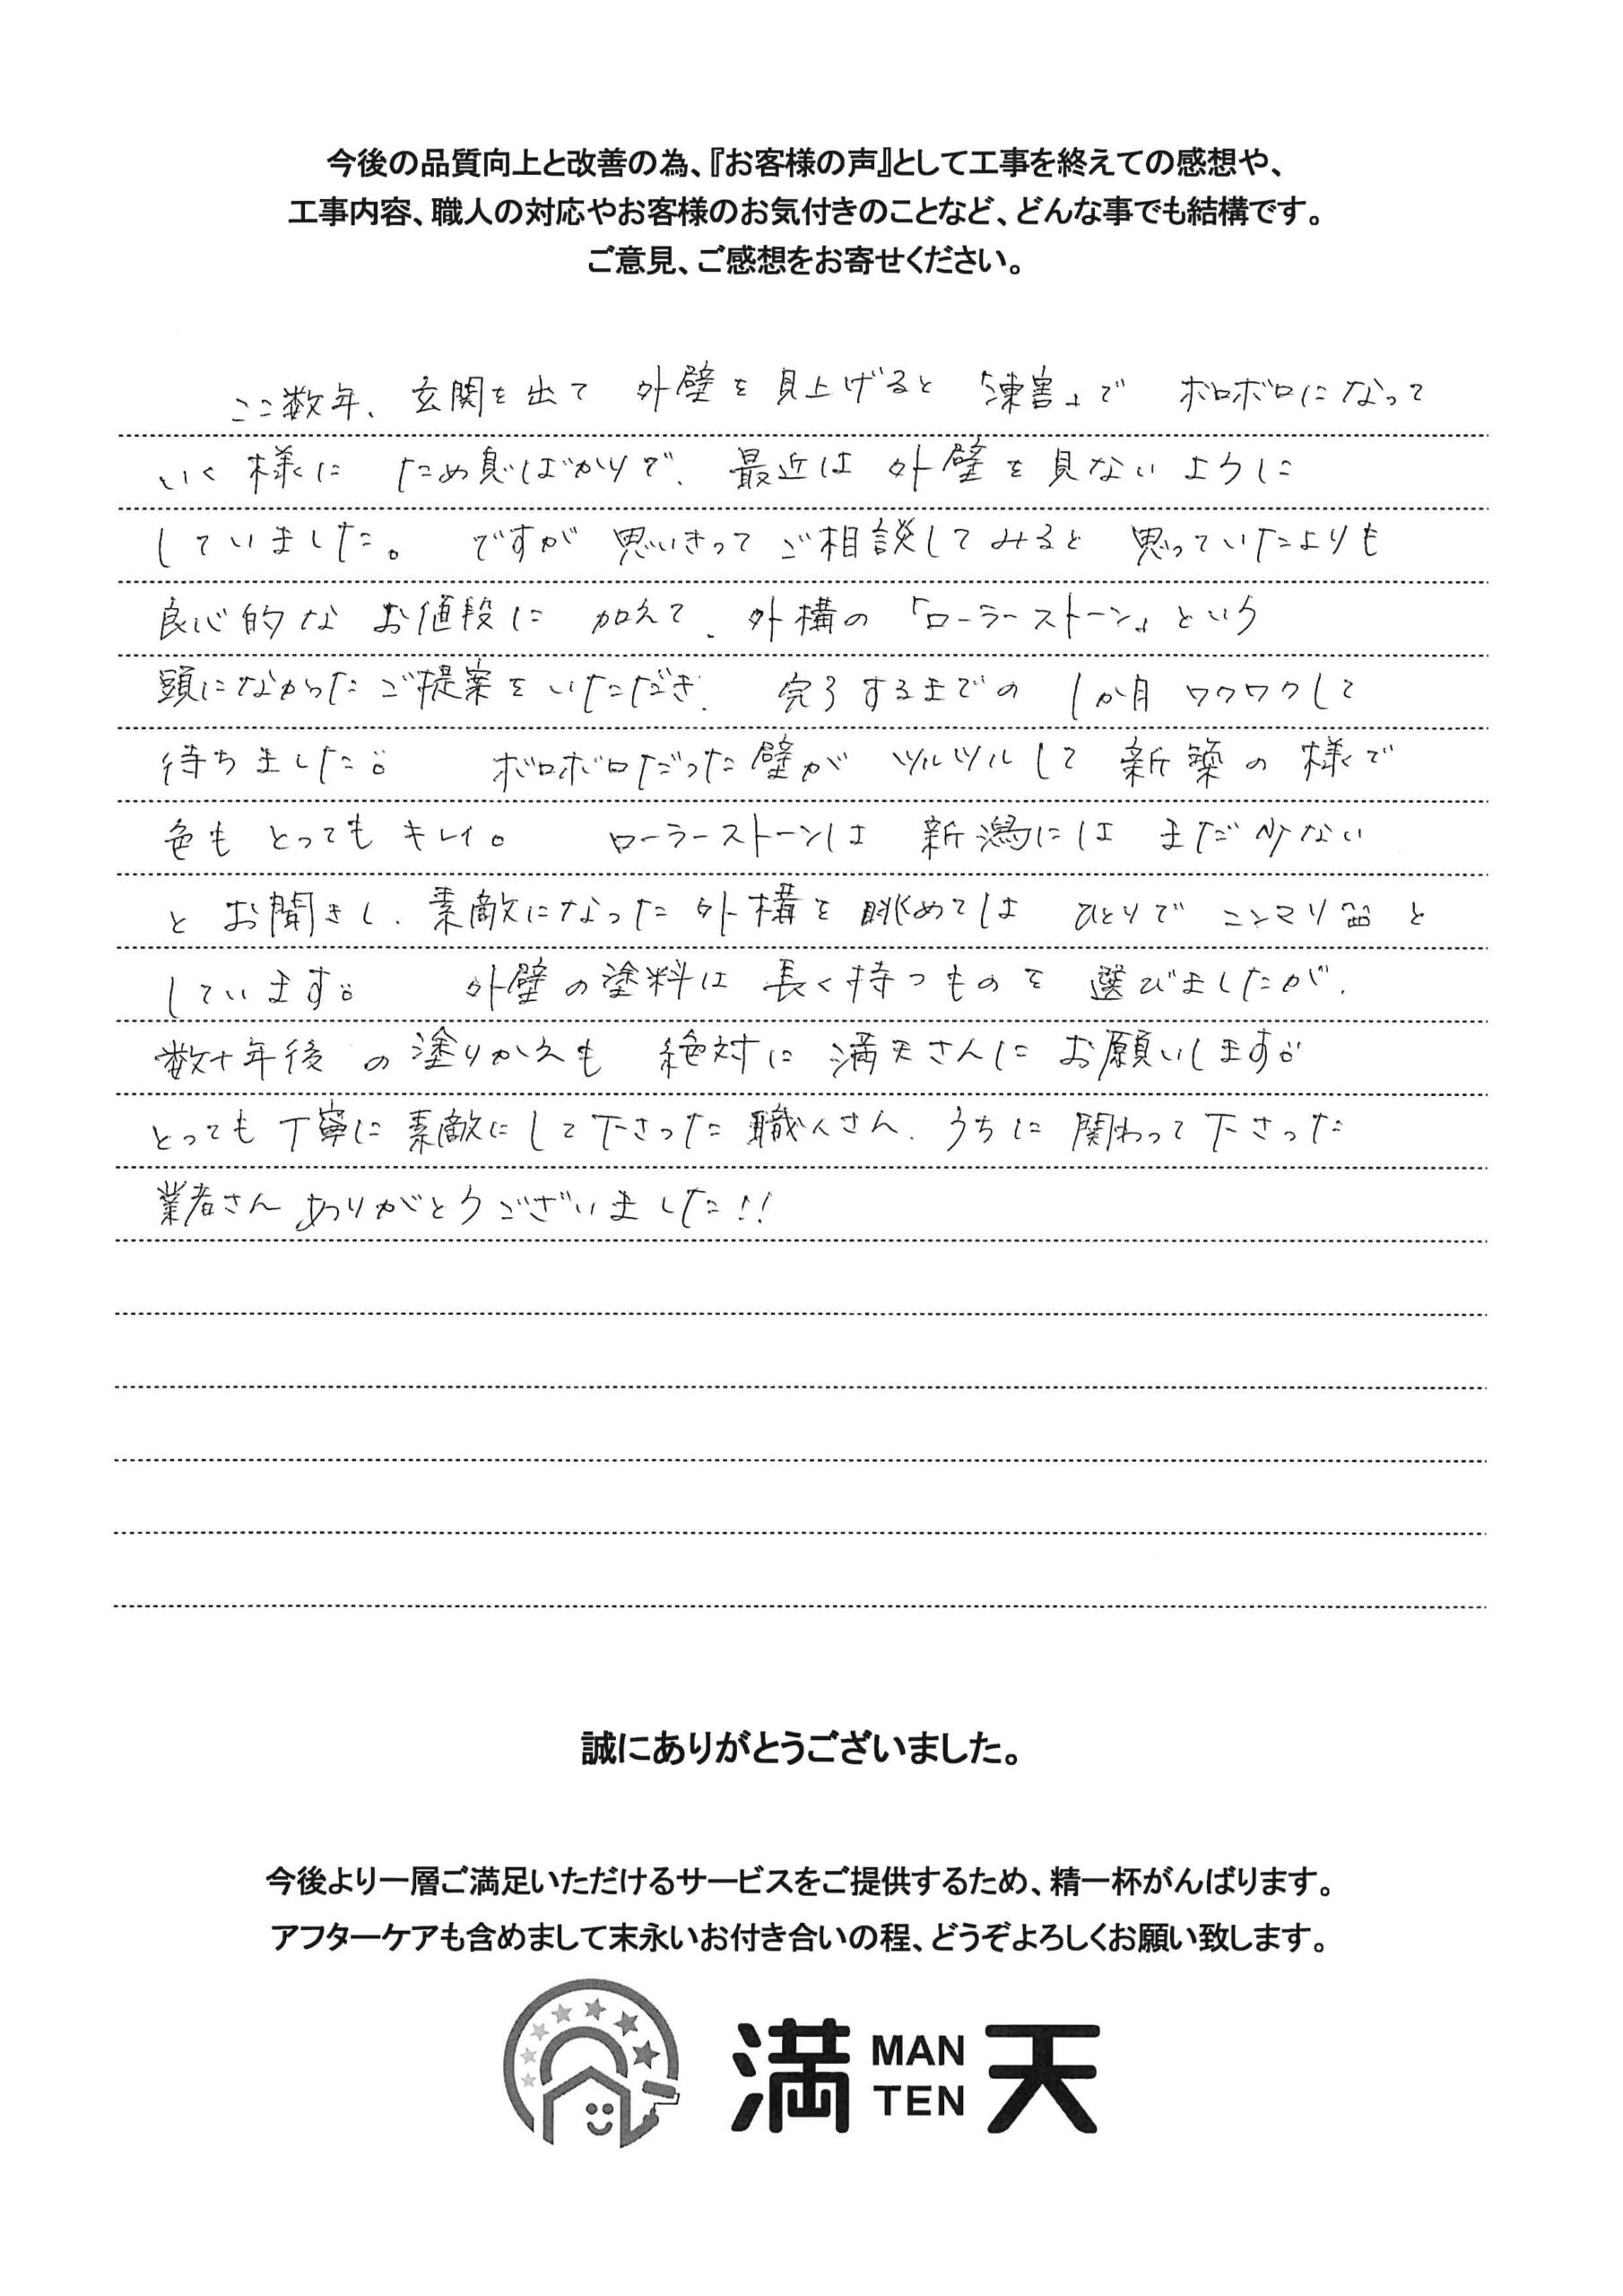 今後の品質向上と改善の為、『お客様の声』として工事を終えての感想や、
工事内容、職人の対応やお客様のお気付きのことなど、どんな事でも結構です。
ご意見、ご感想をお寄せください。
ここ数年、玄関を出て 外壁を見上げると「凍害」で ボロボロになって
いく様に ため息ばかりで、最近は 外壁を見ないように
していました。 ですが 思いきって ご相談してみると 思っていたよりも
良心的な お値段に 加えて、外構の「ローラーストーン」という
頭になかったご提案をいただき、 完了するまでの 1か月 ワクワクして
待ちました。 ボロボロだった壁が ツルツルして 新築の様で
色も とっても キレイ。 ローラーストーンは 新潟には まだ少ない
と お聞きし、素敵になった外構を 眺めては ひとりで ニンマリ と
しています。 外壁の塗料は 長く持つものを 選びましたが、
数十年後 の 塗りかえも 絶対に 満天さんに お願いします。
とっても 丁寧に 素敵にして下さった 職人さん、うちに 関わって下さった
業者さん ありがとうございました!!
誠にありがとうございました。
今後より一層ご満足いただけるサービスをご提供するため、精一杯がんばります。
アフターケアも含めまして末永いお付き合いの程、どうぞよろしくお願い致します。
満 MAN TEN 天